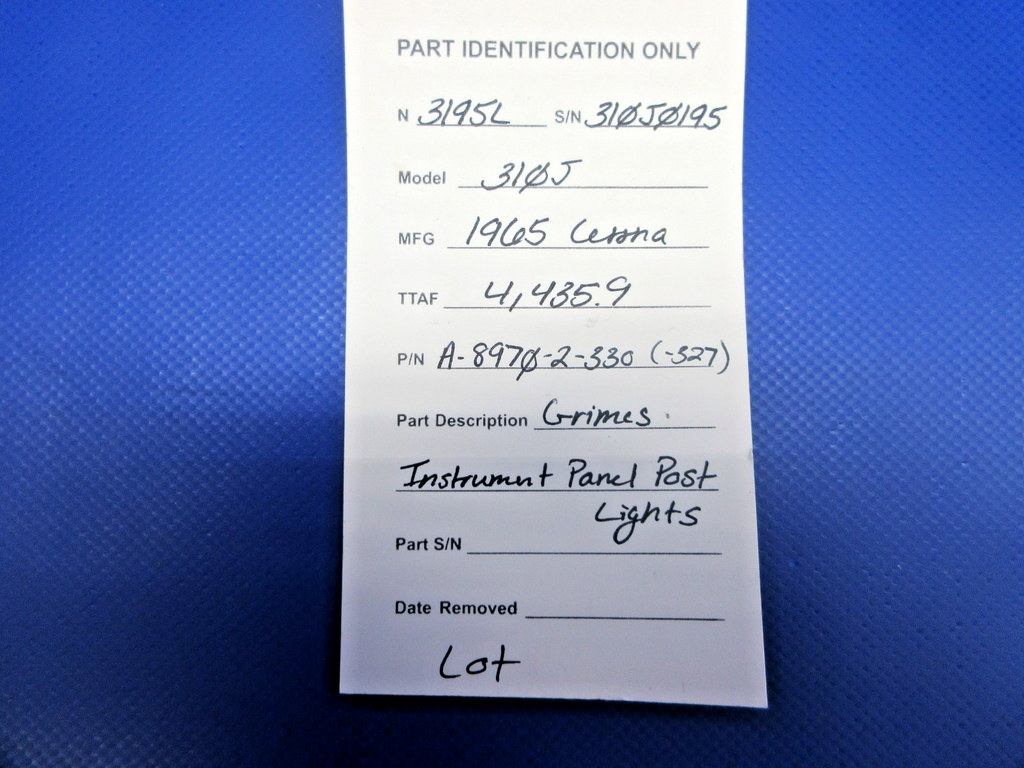 PART IDENTIFICATION ONLY
N 3195L S/N 310J0195
Model 310J
MFG 1965 Cessna
TTAF 4,435.9
P/N A-8970-2-330 (-327)
Part Description Grimes
Instrument Panel Post
Lights
Part S/N
Date Removed
Lot